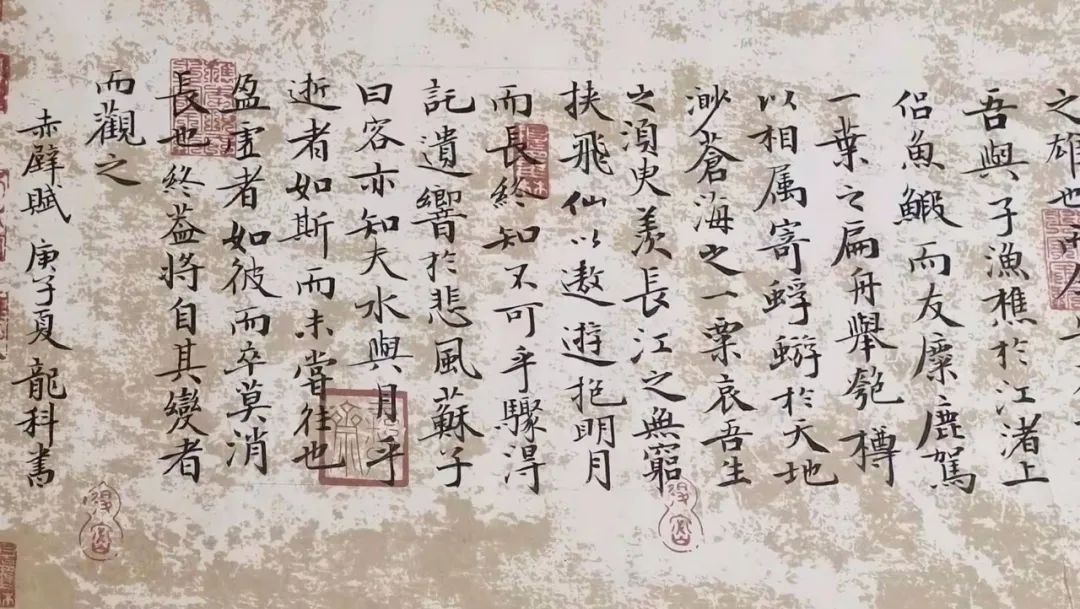 之雄也
吾與子漁樵於江渚上
侶魚鰕而友麋鹿駕
一葉之扁舟舉匏樽
以相属寄蜉蝣於天地
渺蒼海之一粟哀吾生
之須臾羨長江之無窮
挟飛仙以遨遊抱明月
而長終知不可乎驟得
託遺響於悲風蘇子
曰客亦知夫水與月乎
逝者如斯而未嘗往也
盈虛者如彼而卒莫消
長也終蓋將自其變者
而觀之
赤壁賦 庚子夏 龍科書